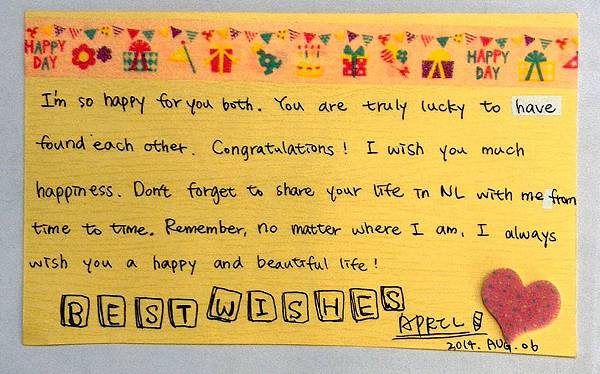 HAPPY DAY HAPPY DAY
I'm so happy for you both. You are truly lucky to have
found each other. Congratulations! I wish you much
happiness. Don't forget to share your life in NL with me from
time to time. Remember, no matter where I am, I always
wish you a happy and beautiful life!
BEST WISHES
APRIL
2014. AUG. 06